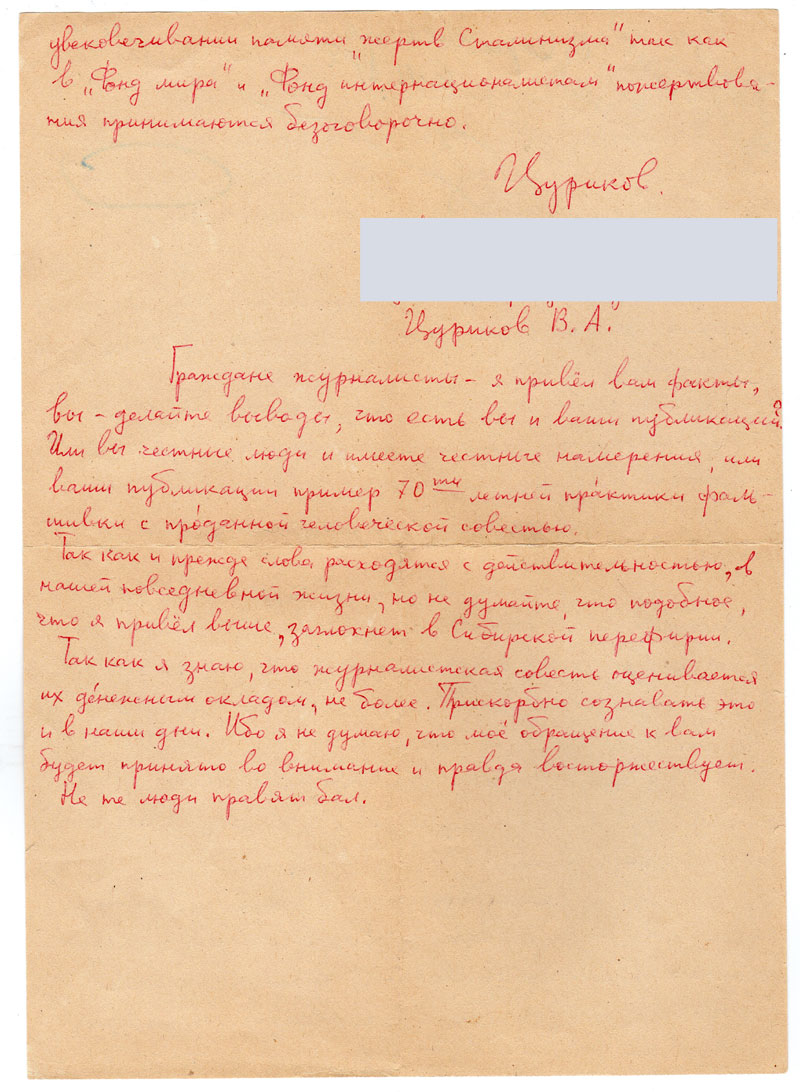 увековечивании памяти „жертв Сталинизма" так как
в „Фонд мира" и „Фонд интернационалистам" пожертвова-
ния принимаются безоговорочно.
Цуриков.
Цуриков В. А.
Граждане журналисты - я привёл вам факты,
вы - делайте выводы, что есть вы и ваши публикации?
Или вы честные люди и имеете честные намерения, или
ваши публикации пример 70ти летней практики фаль-
шивки с проданной человеческой совестью.
Так как и прежде слова расходятся с действительностью, в
нашей повседневной жизни, но не думайте, что подобное,
что я привёл выше, заглохнет в Сибирской переферии.
Так как я знаю, что журналистская совесть оценивается
их денежным окладом, не более. Прискорбно сознавать это
и в наши дни. Ибо я не думаю, что моё обращение к вам
будет принято во внимание и правда восторжествует.
Не те люди правят бал.